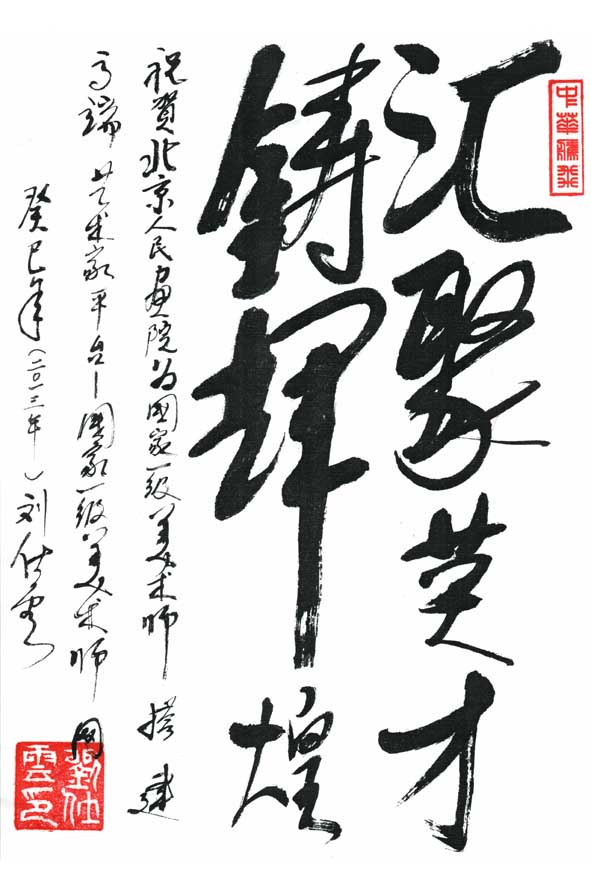 中華騰飛
汇聚英才
铸辉煌
祝賀北京人民画院为國家一级美术师 搭建
高端艺术家平台—國家一级美术师网
癸巳年(二〇一三年)刘仕云
劉仕雲印